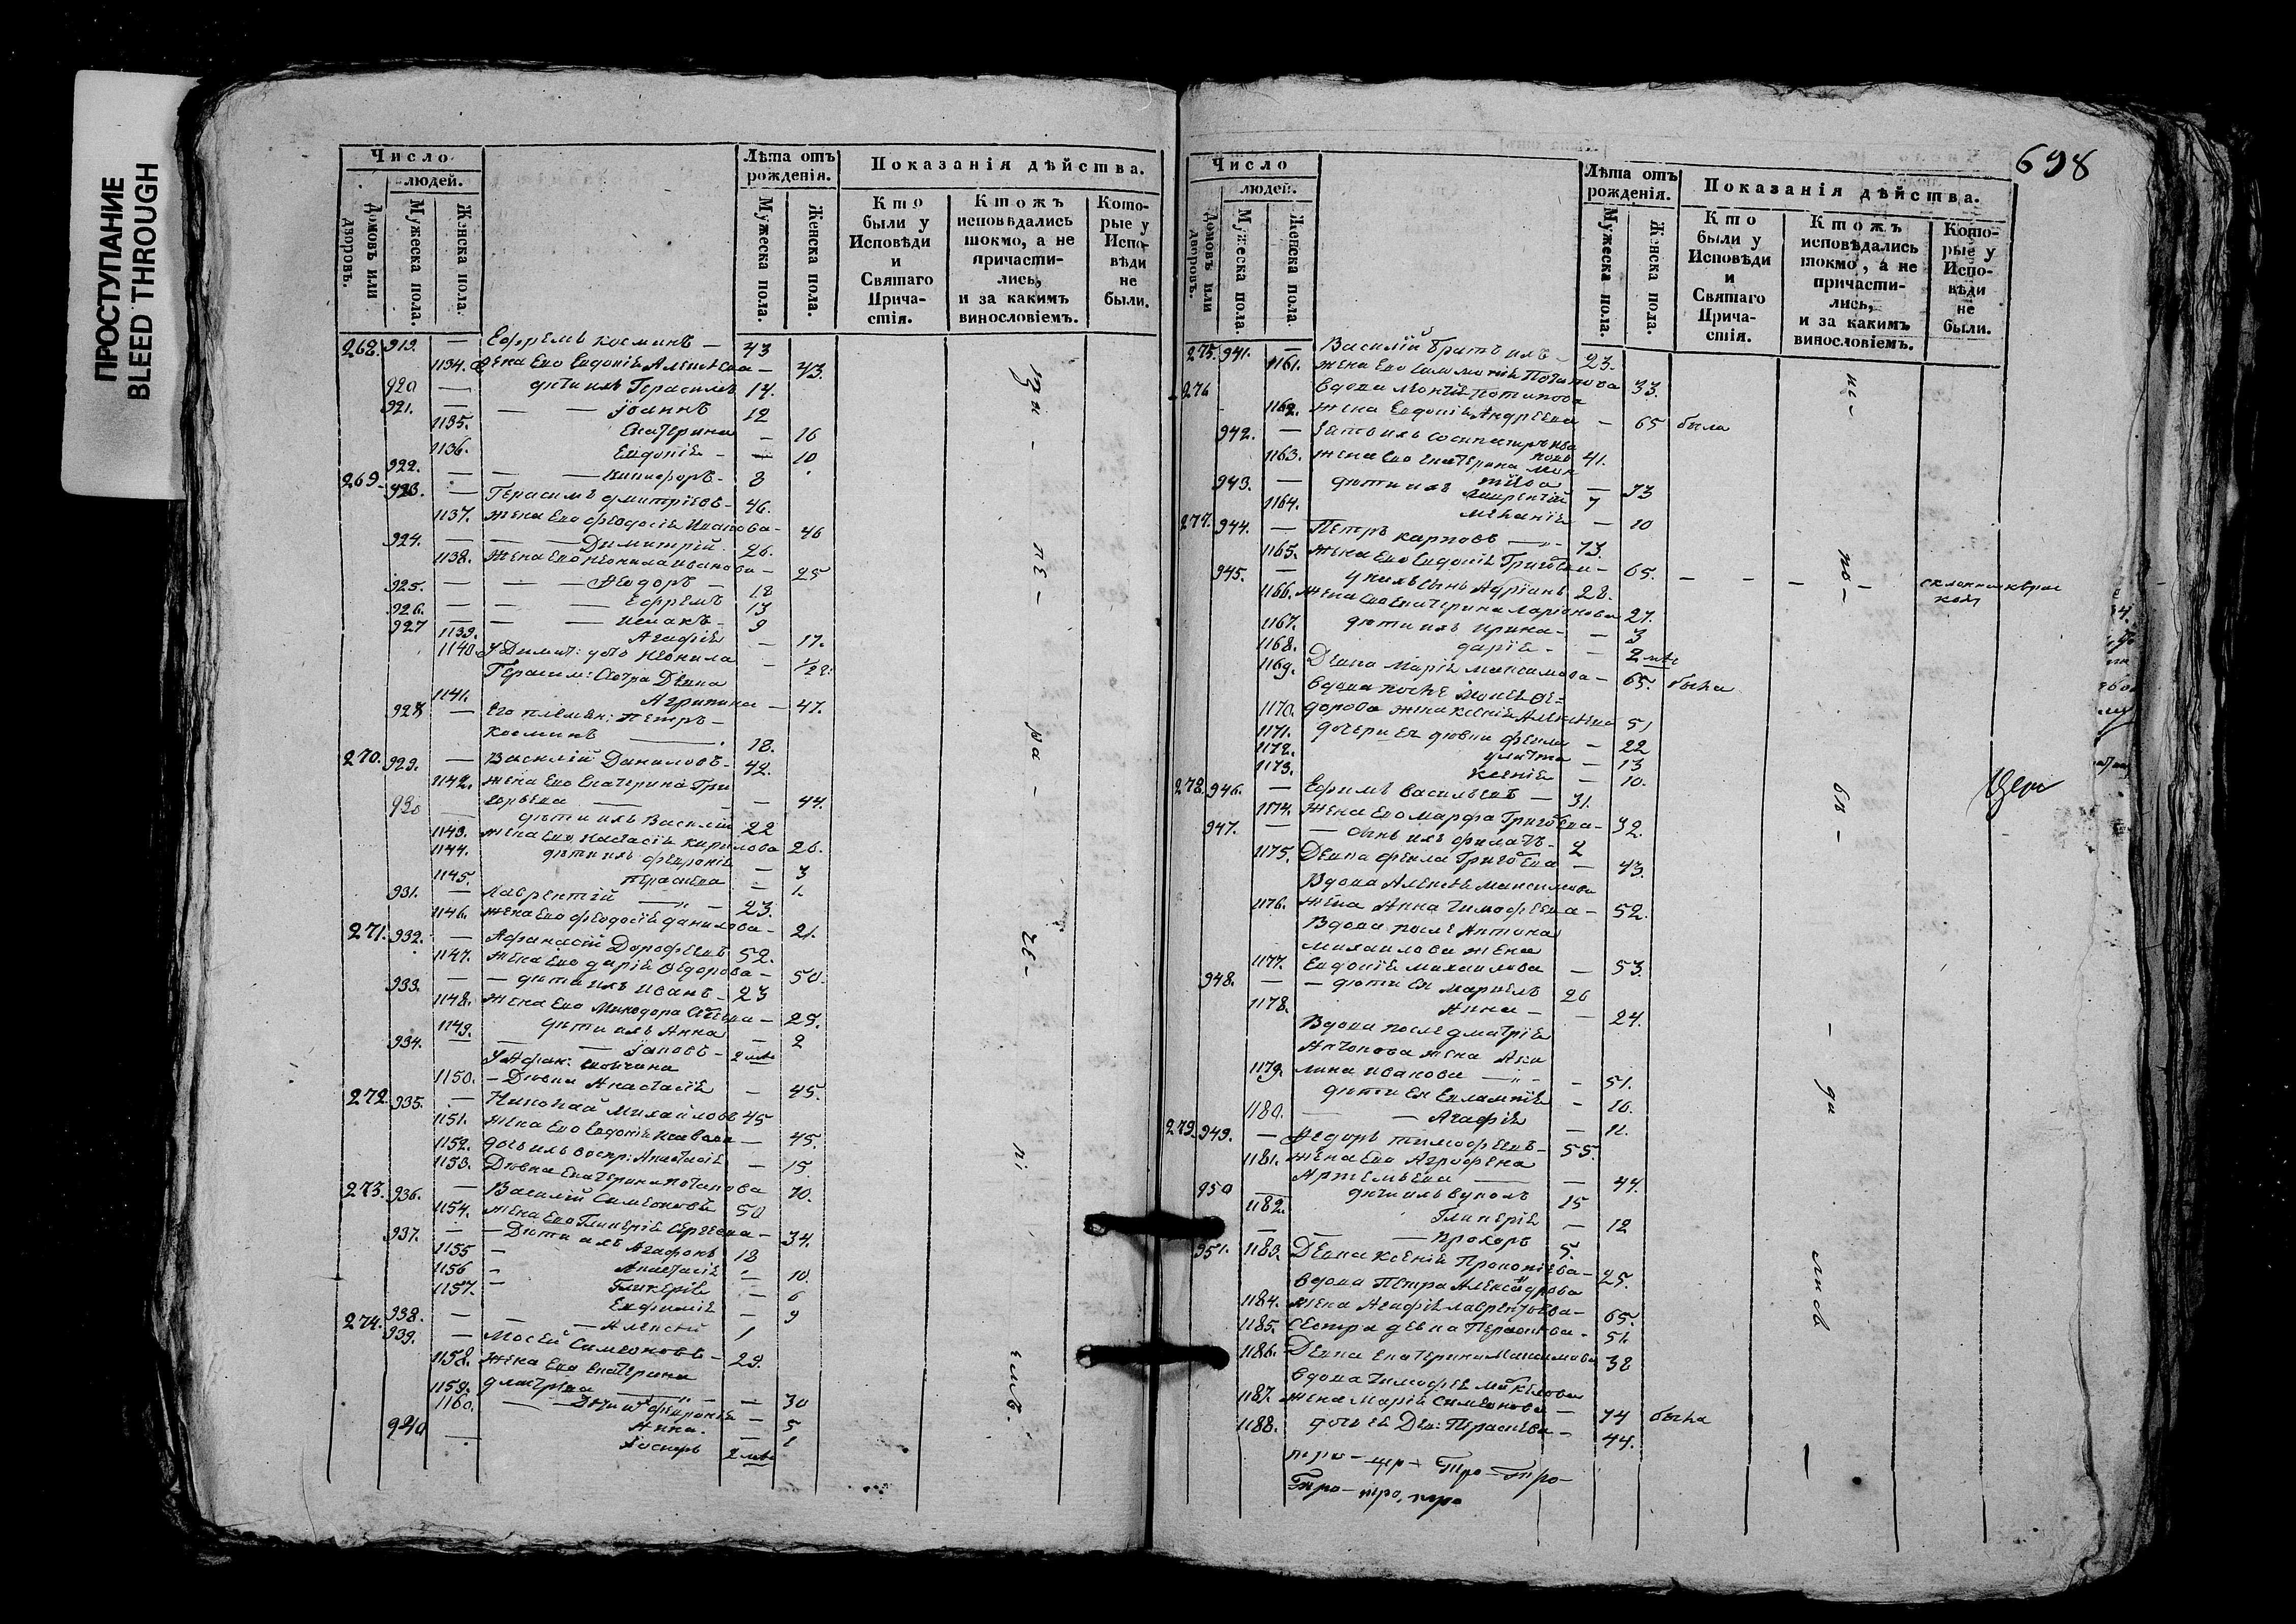 ПРОСТУПАНИЕ
BLEED THROUGH
Число
людей.
Домовъ или дворовъ.
Мужеска пола.
Женска пола.
Лѣта отъ рожденія.
Мужеска пола.
Женска пола.
Показанія дѣйства.
Кто были у Исповѣди и Святаго Прича-стія.
Ктожъ исповѣдались токмо, а не причасти-лись, и за какимъ винословіемъ.
Кото-рые у Испо-вѣди не были.
268. 919. — Ефремъ Косминъ — 43
1134. Жена Его Евдокіѣ Алексѣева — 43.
920 — дѣти ихъ Герасимъ 14.
921. — — — Іоаннъ 12
1135. Екатерина — 16
1136. Евдокіѣ — — 10
922. — — — Никифоръ — 8
269. 923. — Герасимъ Дмитріевъ — 46.
1137. Жена Его Феодосіѣ Иванова — 46
924. — — — Димитрій 26.
1138. Жена Его Неонила Иванова — 25
925. — — — Ѳеодоръ — 18
926. — — — Ефремъ 13
927 — — — Исаакъ — 9
1139. Агафіѣ — 17.
1140. У Димит: дочь Неонила — 1/2
Герасим: Сестра Девка
1141. Агрипина — 47.
928 — Его племян: Петръ —
Косминъ — 18.
270. 929. — Василій Даниловъ — 42.
1142. Жена Его Екатерина Гри
горьева — — — 44.
930 — дѣти ихъ Василій 22
1143. Жена Его Настасіѣ Кирилова 26.
1144. дѣти ихъ Февроніѣ — 3
1145. Парасковіѣ — 1.
931. — Лаврентій — 23.
1146. Жена Его Феодосіѣ Данилова — 21.
271. 932. — Афанасій Дорофеевъ 52.
1147. Жена Его Даріѣ Ѳедорова — 50.
933. — — дѣти ихъ Иванъ — 23
1148. Жена Его Минодора — 25.
1149. дѣти ихъ Анна — 2
934. — — — Іаковъ — 2 мѣс
У Афан:
1150. — Дѣвка Анастасіѣ — 45.
272. 935. — Николай Михаиловъ 45
1151. Жена Его Евдокіѣ — 45.
1152. дочь ихъ воспр: Анастасіѣ — 15
1153. Дѣвка Екатерина Потапова 70.
273. 936. — Василій Симеоновъ 50
1154. Жена Его Гликеріѣ Сергеева — 34.
937. — — Дѣти ихъ Агафонъ 18
1155 — Анастасіѣ — 10.
1156 — Гликеріѣ — 6
1157. — Евфиміѣ — 9
938. — — — Алексѣй 1
274. 939. — Мосей Симеоновъ — 29.
1158. Жена Его Екатерина
Дмитріева — — 30
1159. — Дѣти ихъ Февроніѣ — 5
1160. Анна. — 1
940 — 2 мѣс
698
Число
людей.
Домовъ или дворовъ.
Мужеска пола.
Женска пола.
Лѣта отъ рожденія.
Мужеска пола.
Женска пола.
Показанія дѣйства.
Кто были у Исповѣди и Святаго Прича-стія.
Ктожъ исповѣдались токмо, а не причасти-лись, и за какимъ винословіемъ.
Кото-рые у Испо-вѣди не были.
275. 941. — Василій братъ ихъ — 23.
1161. Жена Его Соломоніѣ Потапова 33.
276 Вдова Леонтіѣ Потапова
1162. Жена Евдокіѣ Андреева — 65 была
942. — Зять ихъ 41.
1163. Жена Его Екатерина — 33
943. — дѣти ихъ Лаврентій 7
1164. Меланіѣ — 10
277. 944. — Петръ Карповъ — 73.
1165. Жена Его Евдокіѣ Григорьева — 65.
945. — У нихъ сынъ Адріанъ 28.
1166. Жена Его Екатерина Ларіонова 27.
1167. дѣти ихъ Ирина — — 3
1168. Даріѣ — — 2 мѣс
1169. Девка Маріѣ Максимова — 65. была
Вдова после Моисея Ѳе-
1170. дорова жена Ксеніѣ Алексѣева 51
1171. дочери Ея дѣвки Фекла — 22
1172. Улита — 13
1173. Ксеніѣ — 10.
278. 946. — Ефимъ Васильевъ — 31.
1174. Жена Его Марфа Григорьева — 32.
947. — — сынъ ихъ Филатъ — 2
1175. Девка Фекла Григорьева — 43.
Вдова Алексѣѣ Максимова
1176. Жена Анна Тимофеева — 52.
Вдова после Антона
Михаилова жена
1177. Евдокіѣ Михаилова — 53.
948. — — дѣти Ея Маркелъ 26
1178. Анна — — 24.
Вдова после Дмитріѣ
Антонова жена Аку
1179. лина Иванова — 51.
дѣти Ея Евлампіѣ — 16.
1180. — — Агафіѣ — 11.
279. 949. — Ѳедоръ Тимофеевъ — 55.
1181. Жена Его Агрофена
Артемьева — — 44.
950 — дѣти ихъ Вуколъ 15
1182. Гликеріѣ — 12
951. — — Прохоръ 5.
1183. Девка Ксеніѣ Прокопіева — 25.
Вдова Петра Александрова
1184. Жена Агафіѣ Лаврентьева — 65.
1185. Сестра девка Парасковіѣ — 51.
1186. Девка Екатерина Максимова 38
Вдова Тимофеѣ
1187. Жена Маріѣ Симеонова — 74 была
1188. дочь Ей Дев: Парасковіѣ — 44.